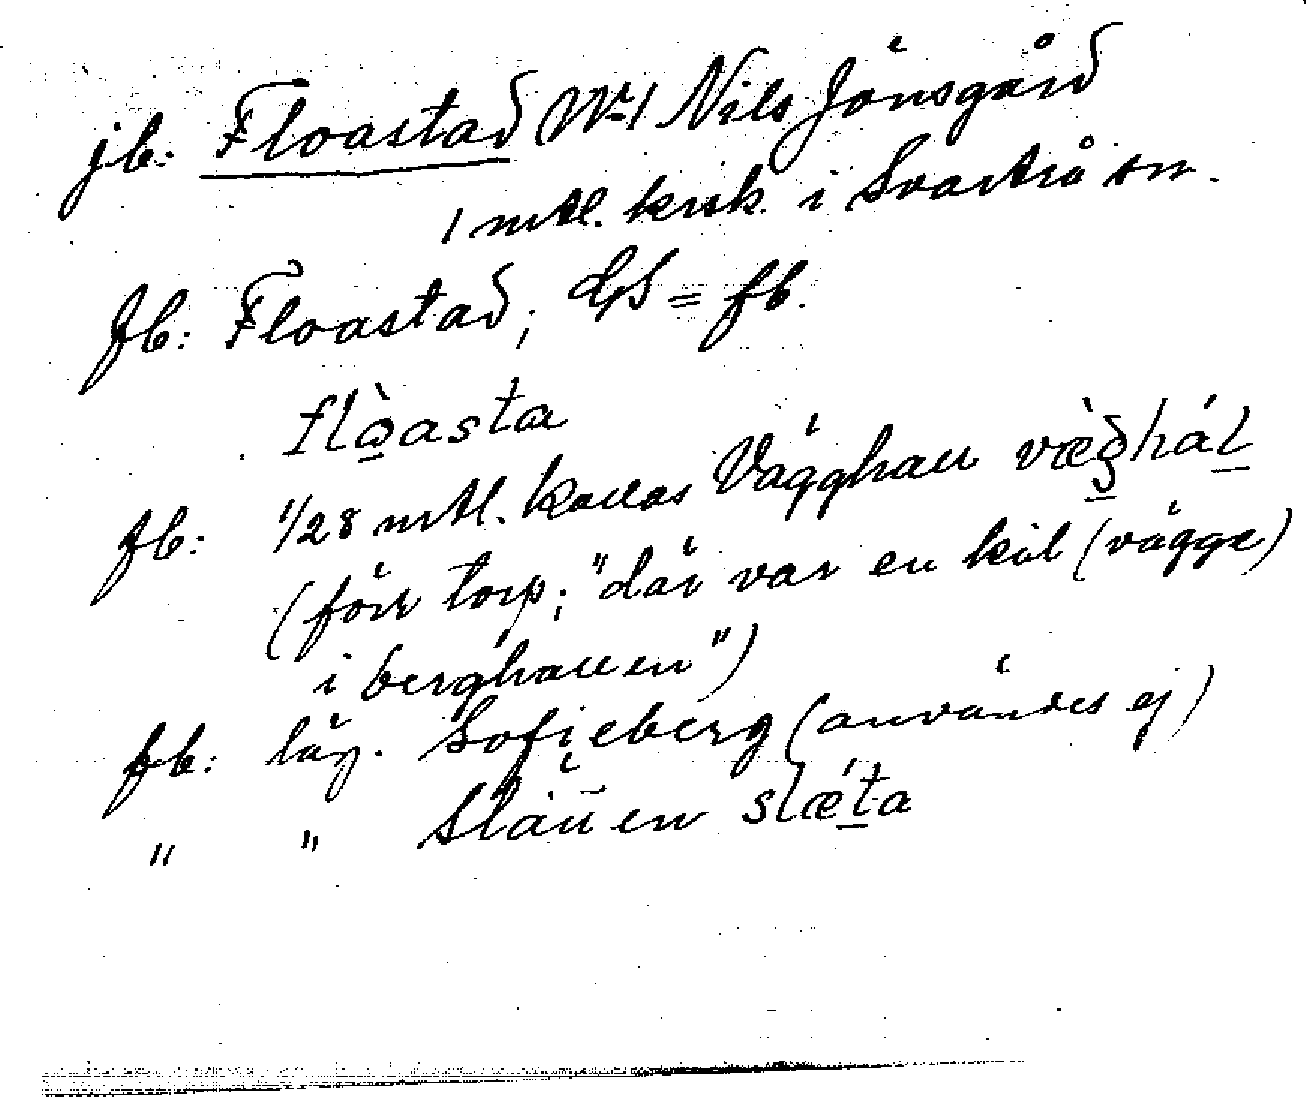 jb: Floastad Nr 1 Nils Jönsgård
1 mtl. krsk. i Svartrå sn.
fb: Floastad; GS = fb.
flò̱asta
fb: 1/28 mtl. kallas Vägghall væ̀g̱háḻ
(förr torp; "där var en kil (vägge)
i berghallen")
fb: läg. Sofieberg (användes ej)
" " Slätten slǽṯa